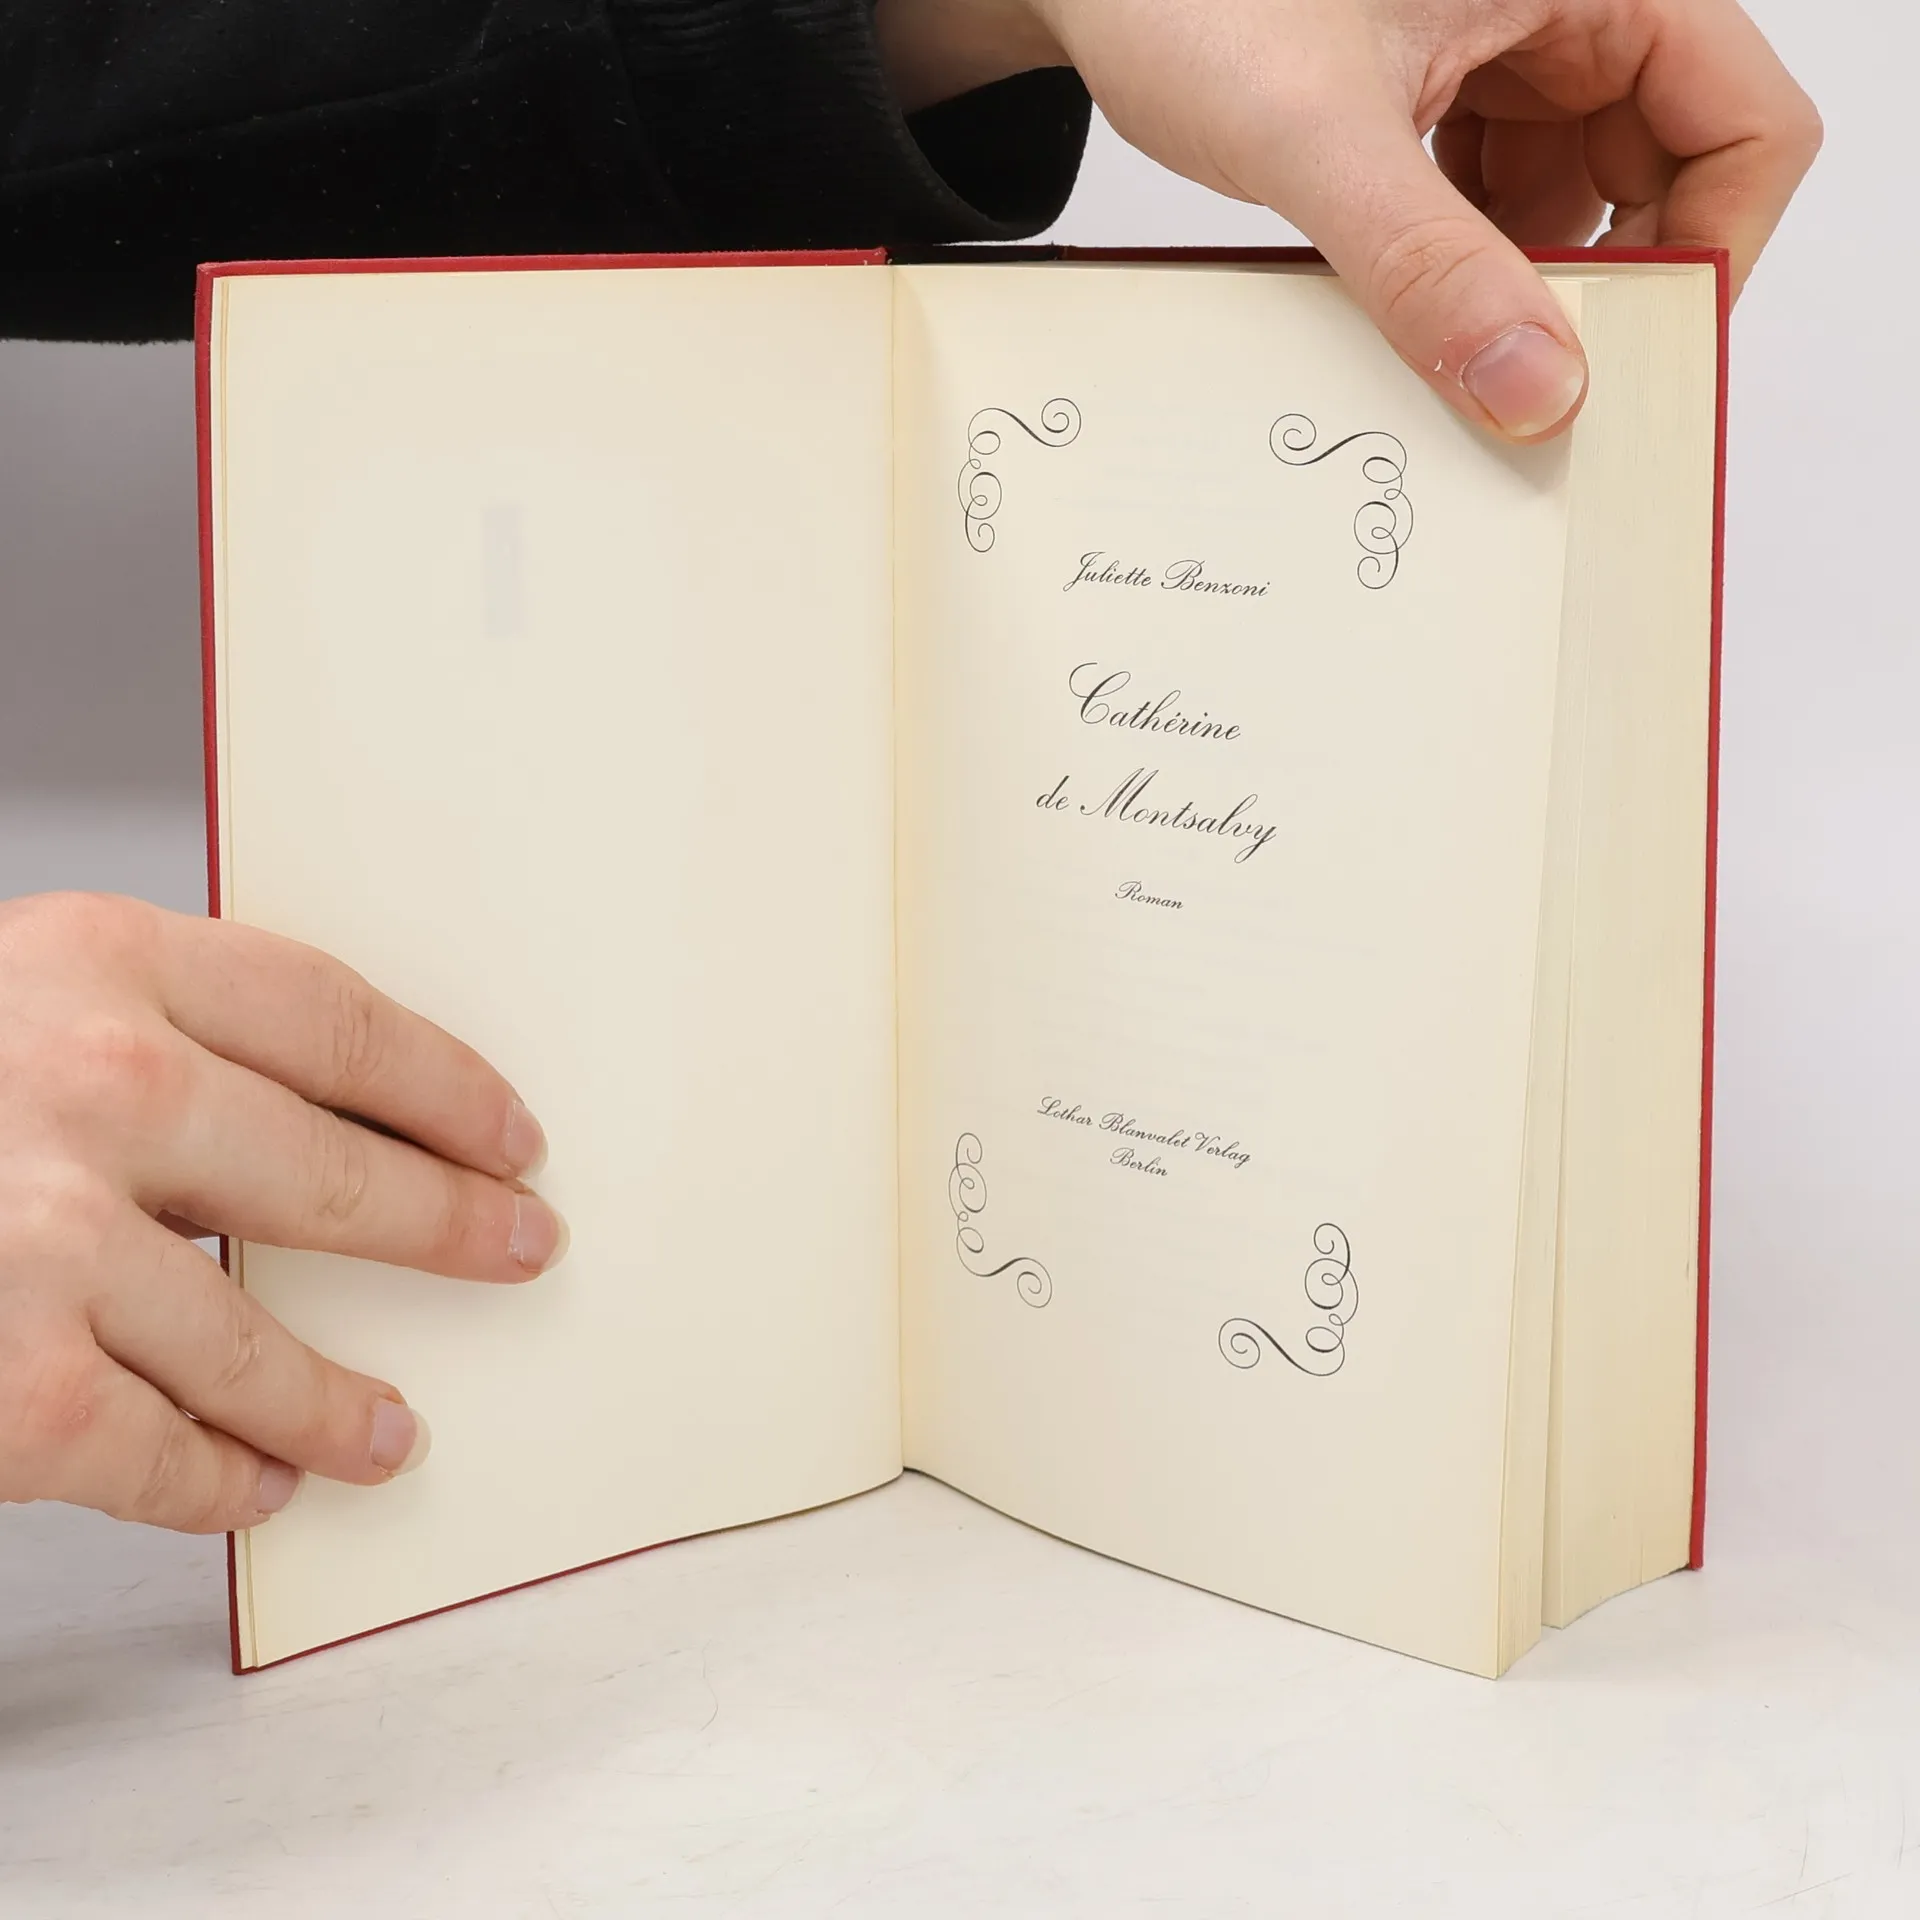 Juliette Benzoni
Cathérine
de Montsalvy
Roman
Lothar Blanvalet Verlag
Berlin